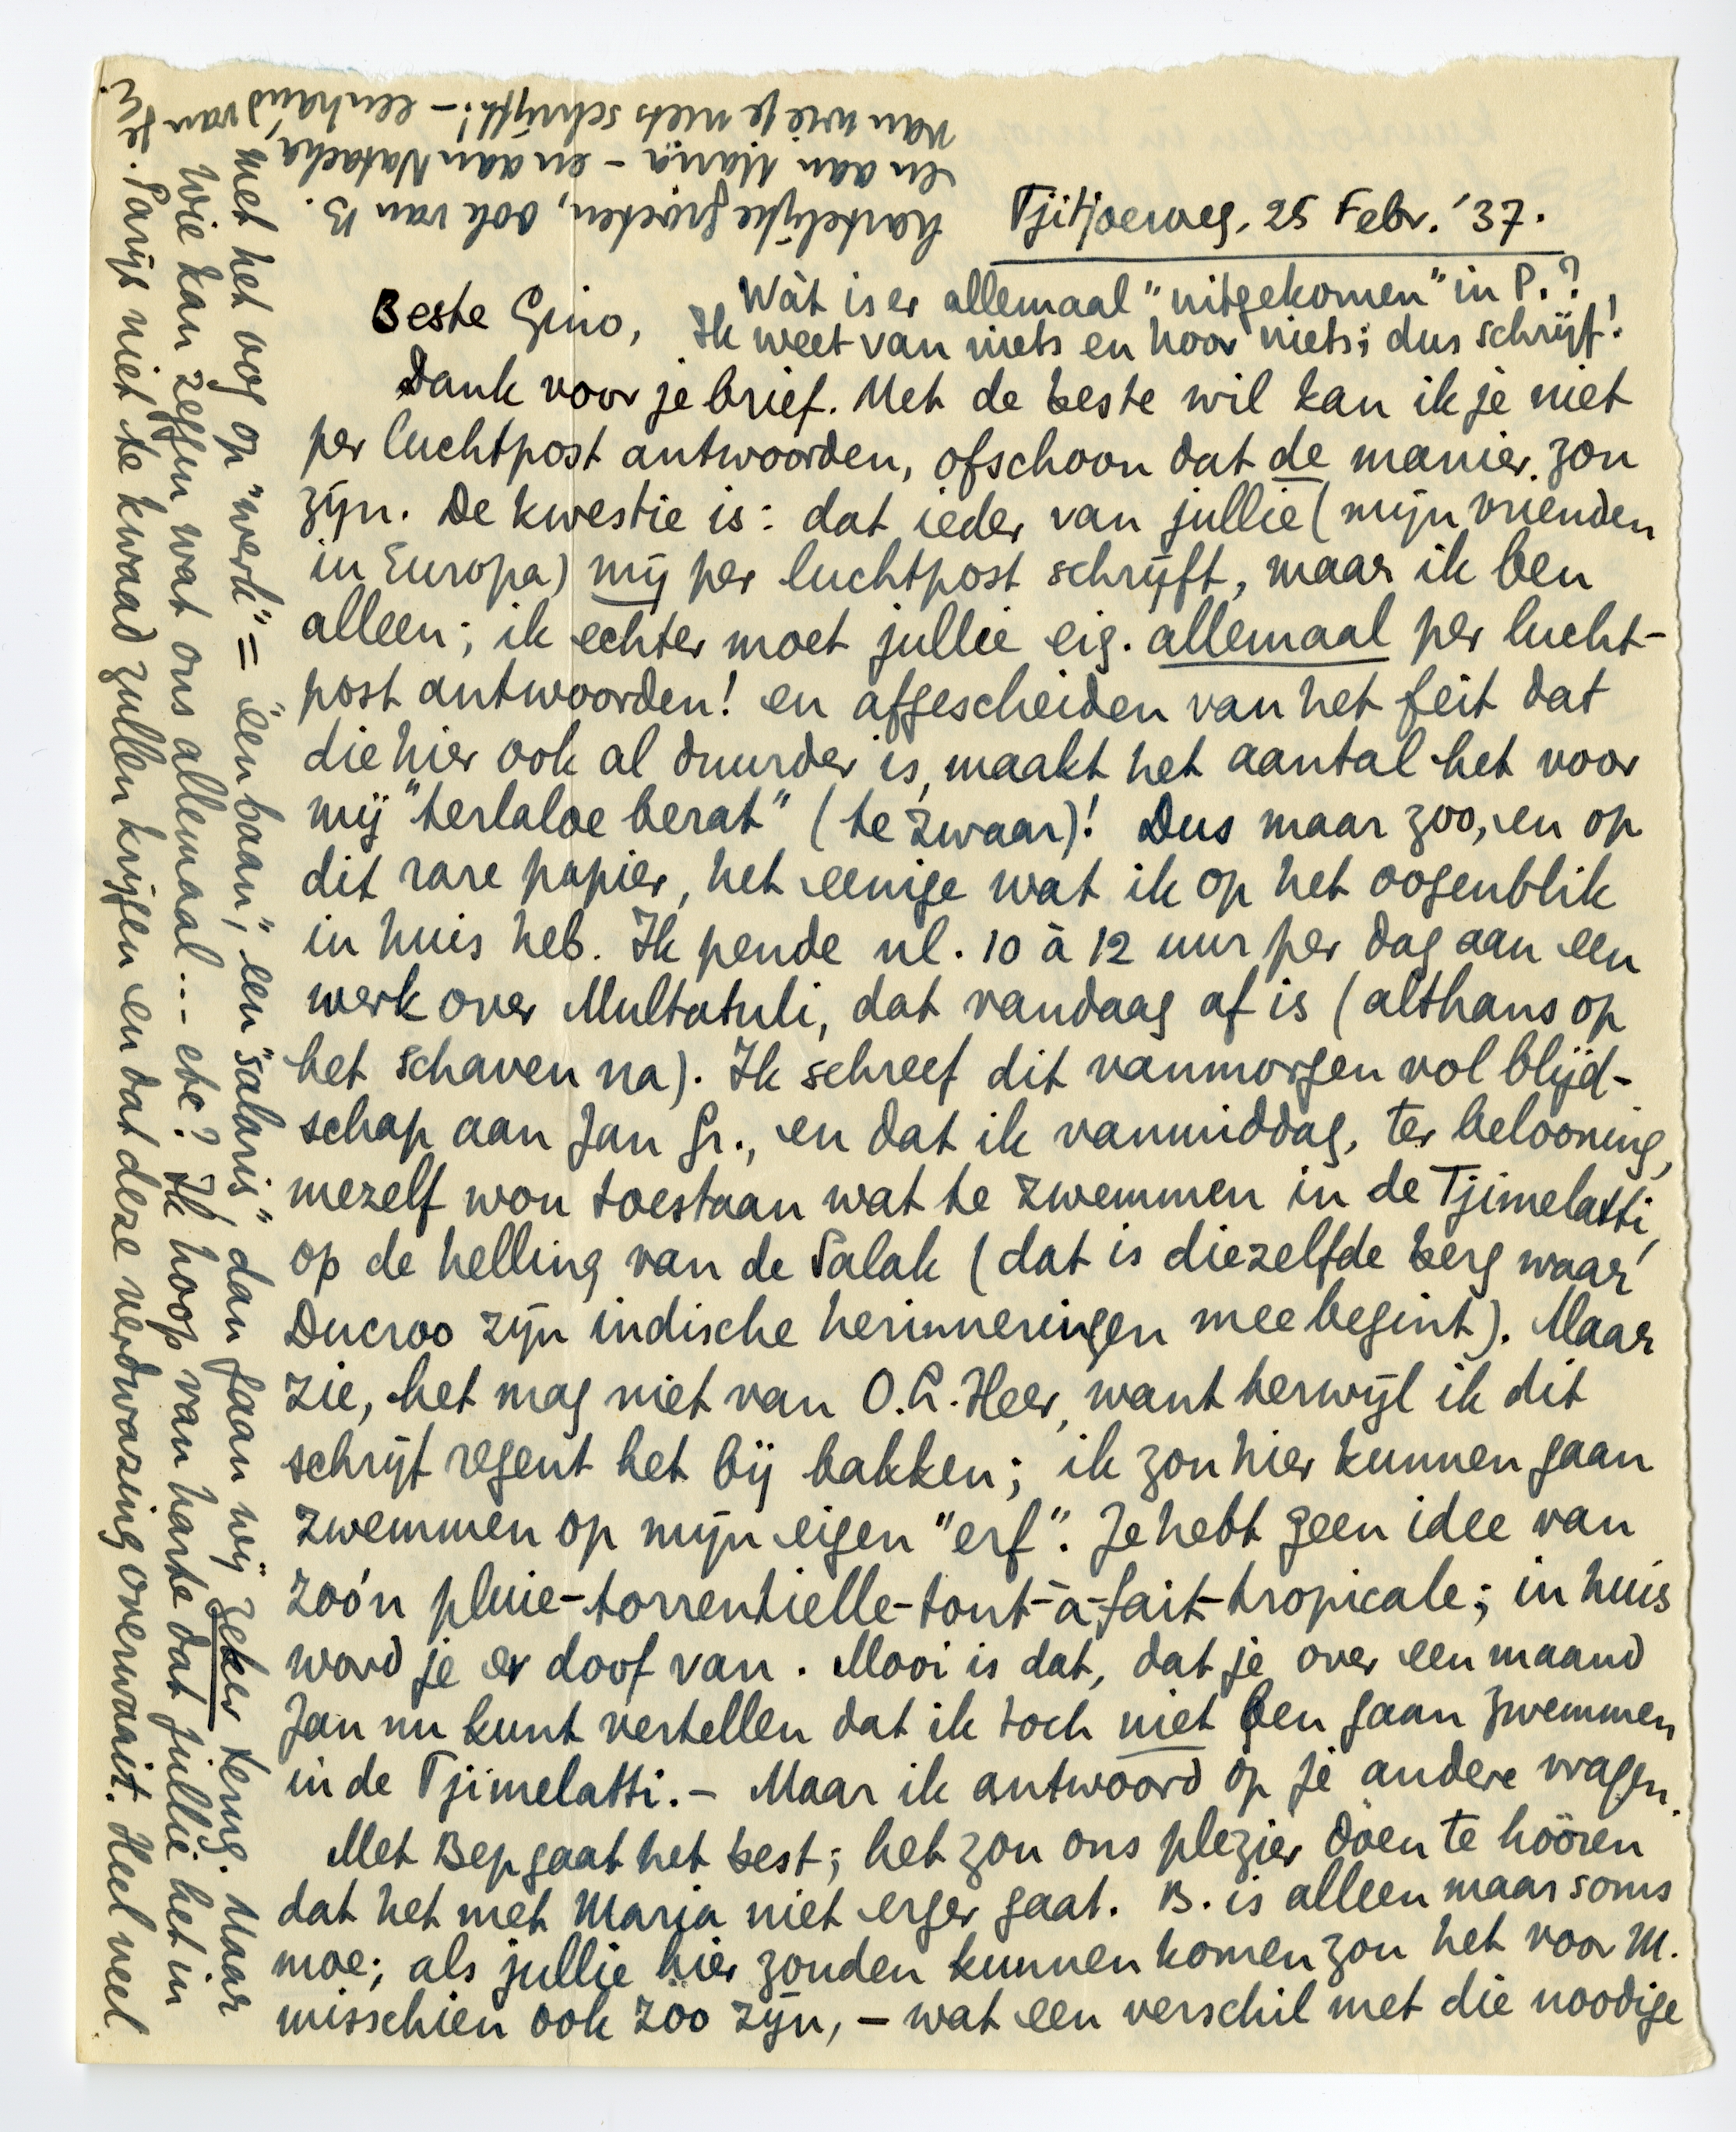 Tjitjoeroeg, 25 Febr. '37.
Beste Gino,
Wàt is er allemaal "uitgekomen" in P.?
Ik weet van niets en hoor niets; dus schrijf!
Dank voor je brief. Met de beste wil kan ik je niet
per luchtpost antwoorden, ofschoon dat de manier zou
zijn. De kwestie is: dat ieder van jullie (mijn vrienden
in Europa) mij per luchtpost schrijft, maar ik ben
alleen; ik echter moet jullie eig. allemaal per lucht-
post antwoorden! en afgescheiden van het feit dat
die hier ook al duurder is, maakt het aantal het voor
mij "terlaloe berat" (te zwaar)! Dus maar zoo, en op
dit rare papier, het eenige wat ik op het oogenblik
in huis heb. Ik pende nl. 10 à 12 uur per dag aan een
werk over Multatuli, dat vandaag af is (althans op
het schaven na). Ik schreef dit vanmorgen vol blijd-
schap aan Jan Gr., en dat ik vanmiddag, ter belooning,
mezelf wou toestaan wat te zwemmen in de Tjimelatti,
op de helling van de Salak (dat is diezelfde berg waar
Ducroo zijn indische herinneringen mee begint). Maar
zie, het mag niet van O.L. Heer, want terwijl ik dit
schrijf regent het bij bakken; ik zou hier kunnen gaan
zwemmen op mijn eigen "erf". Je hebt geen idee van
zoó'n pluie-torrentielle-tout-à-fait-tropicale; in huis
word je er doof van. Mooi is dat, dat je over een maand
Jan nu kunt vertellen dat ik toch niet ben gaan zwemmen
in de Tjimelatti. – Maar ik antwoord op je andere vragen.
Met Bep gaat het best; het zou ons plezier doen te hooren
dat het met Maria niet erger gaat. B. is alleen maar soms
moe; als jullie hier zouden kunnen komen zou het voor M.
misschien ook zoo zijn, – wat een verschil met die noodige
met het oog op "werk" = "een baan", een "salaris" dan gaan wij zeker terug. Maar
wie kan zeggen wat ons allemaal... etc? Ik hoop van harte dat jullie het in
Parijs niet te kwaad zullen krijgen en dat deze verdwazing overwaait. Heel veel
hartelijke groeten, ook van B.
en aan Maria – en aan Natacha,
van wie je niets schrijft! – een hand van je
E.